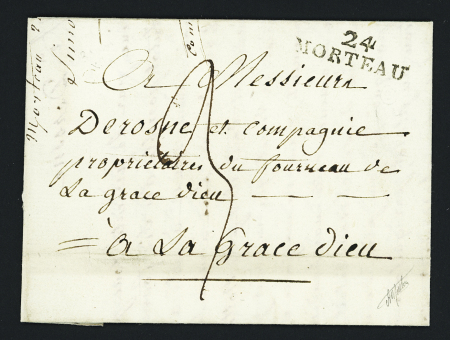 24
MORTEAU
A Messieurs
Derosne et compagnie
propriétaires du fourneau de
La grace dieu
= à La Grace dieu
Morteau